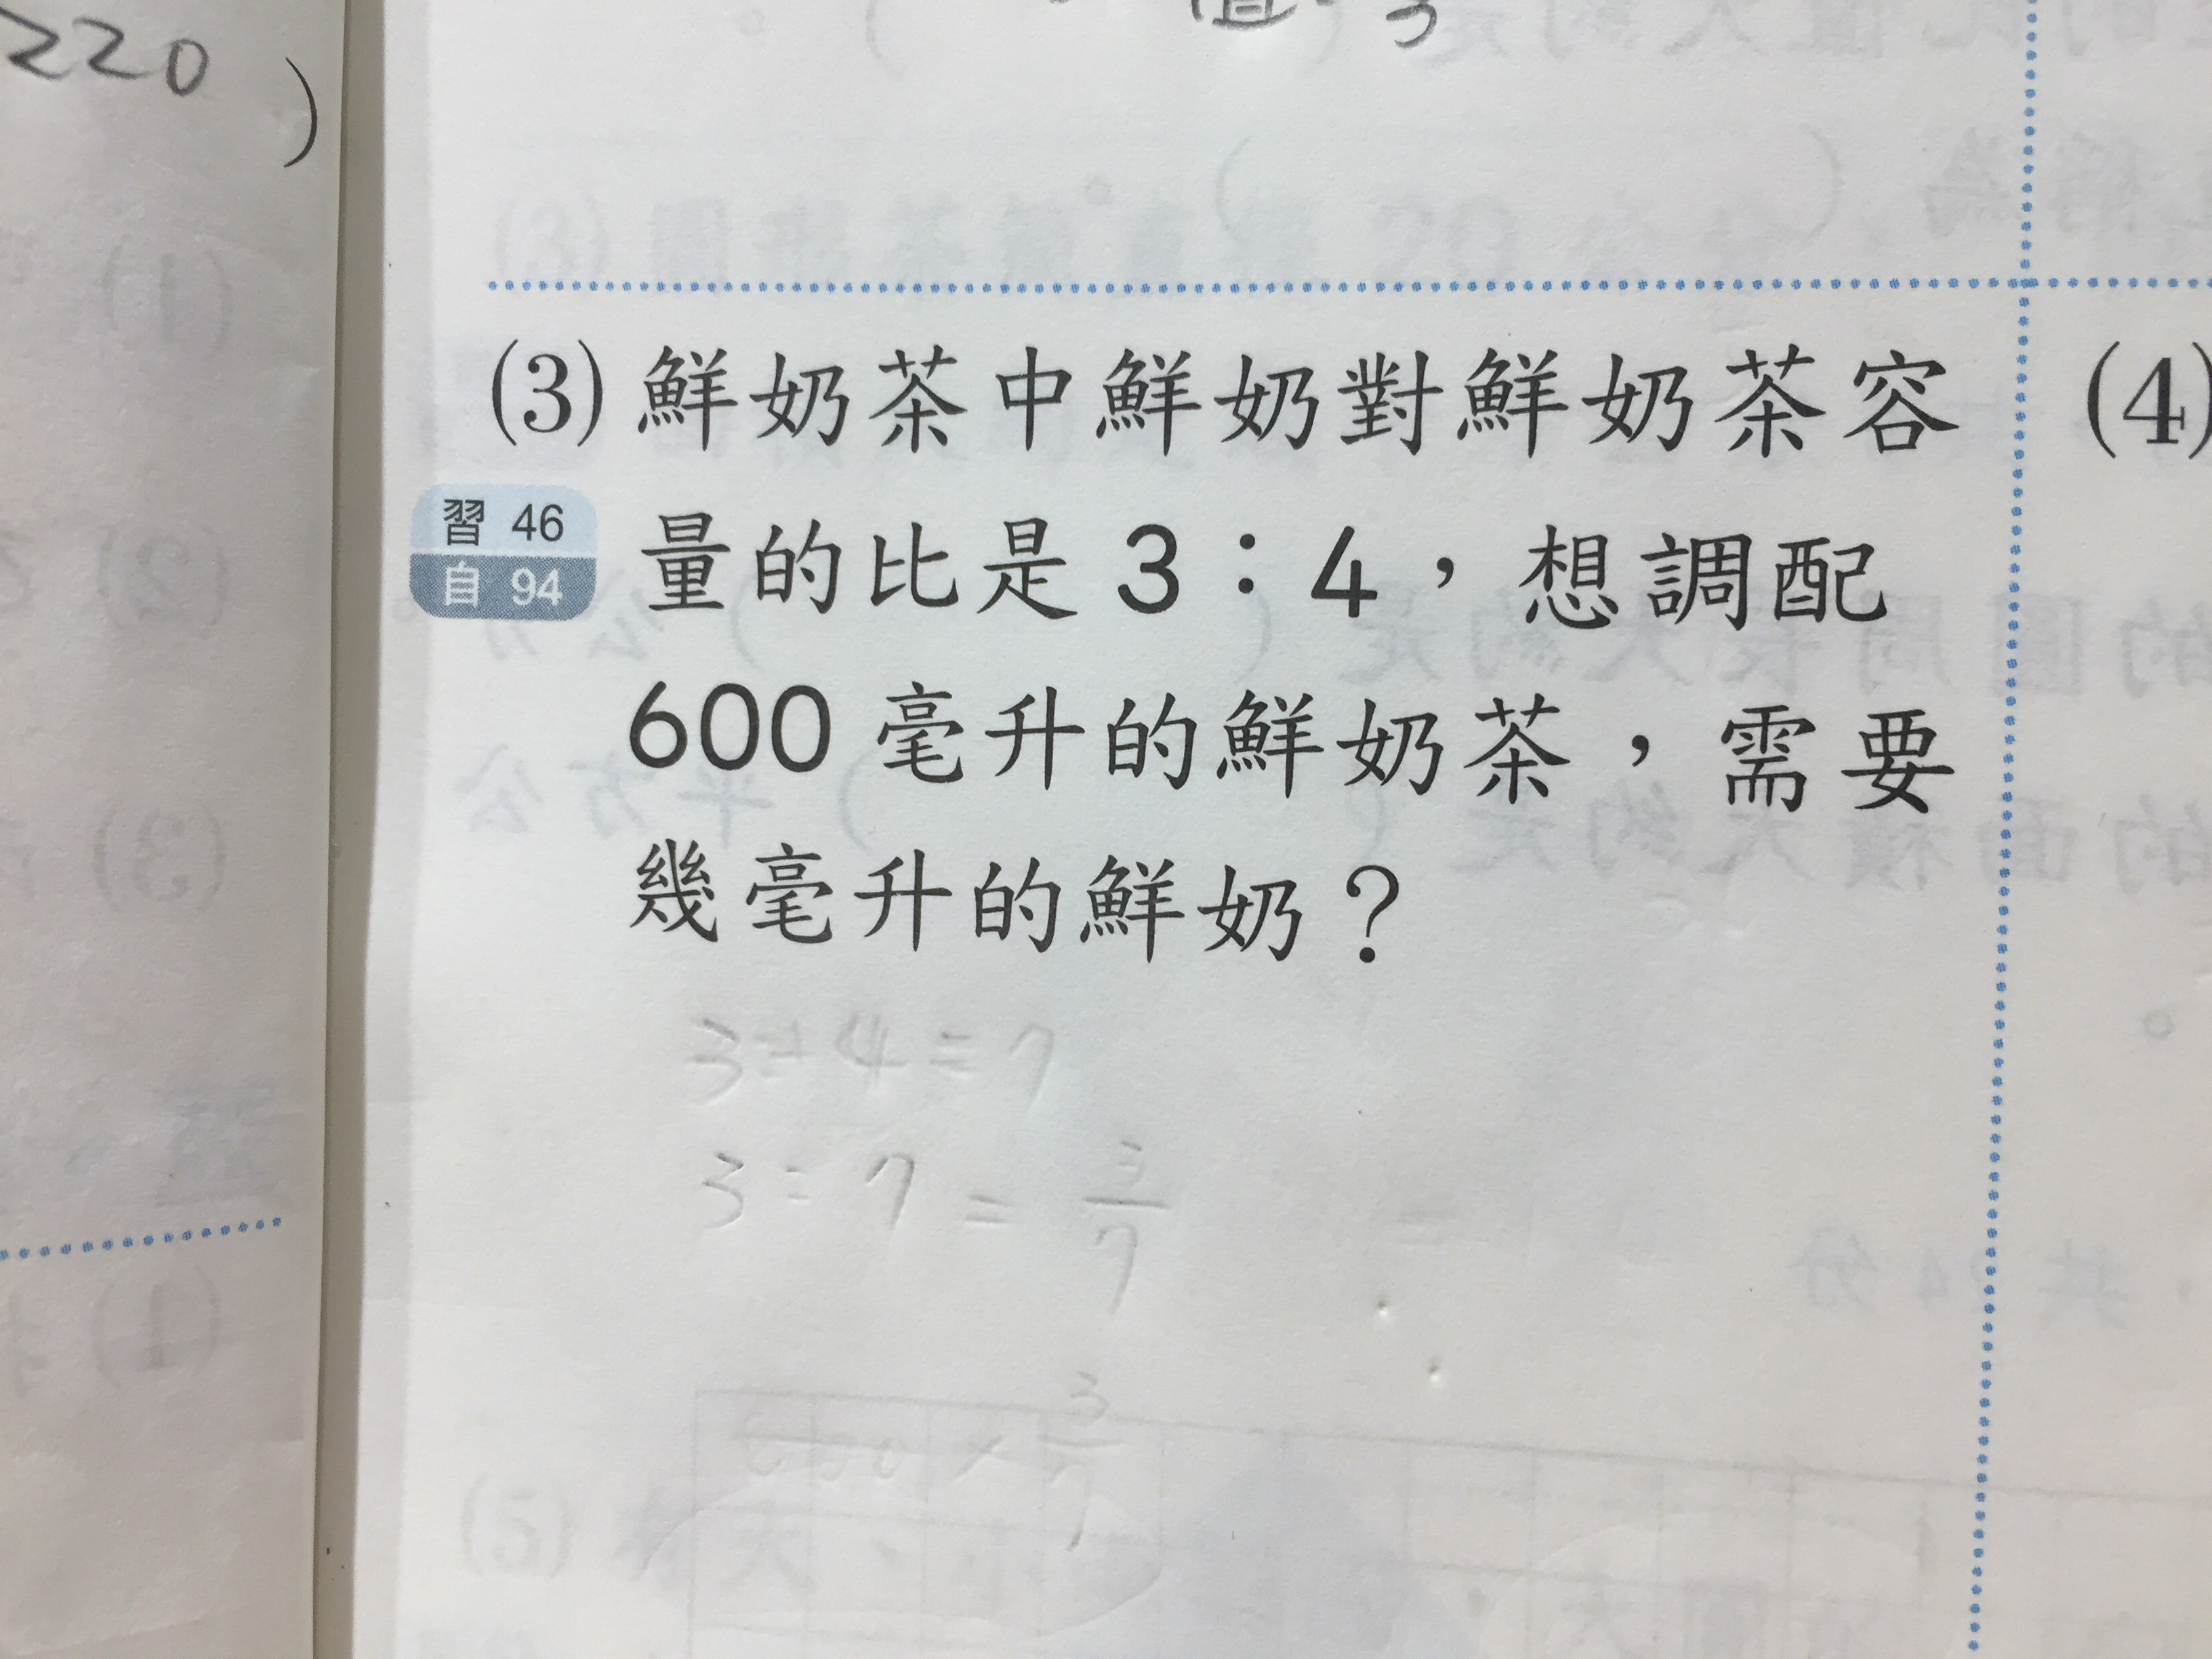 220
)
(3) 鮮奶茶中鮮奶對鮮奶茶容
習 46
自 94
量的比是 3：4，想調配
600 毫升的鮮奶茶，需要
幾毫升的鮮奶？
(4)
3+4=7
3:7=3/7
600×3/7